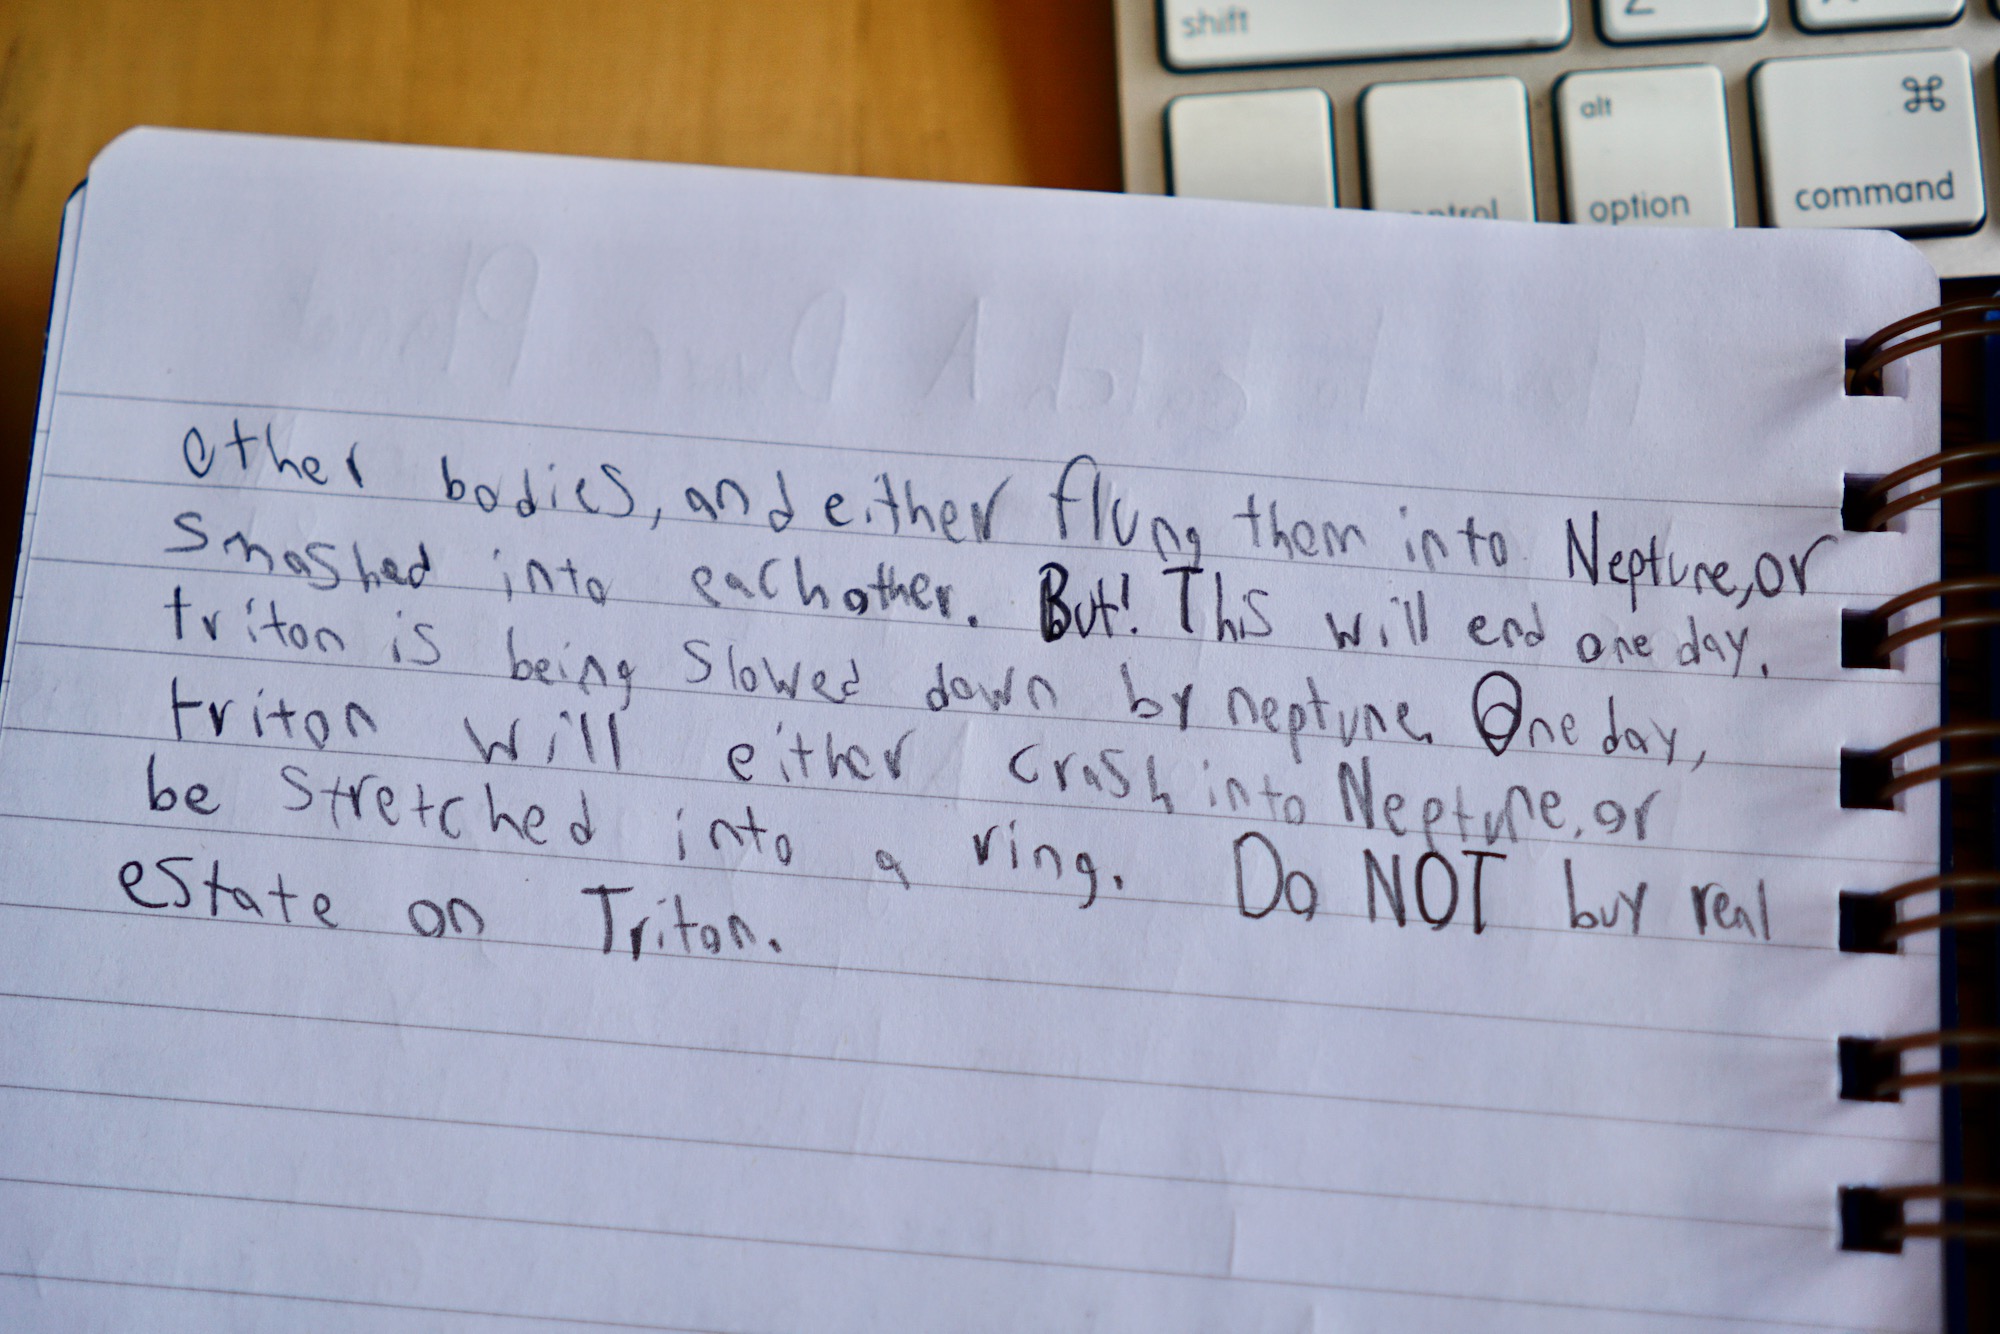 shift
Z
alt
⌘
option
command
other bodies, and either flung them into Neptune, or
smashed into eachother. But! This will end one day.
triton is being slowed down by neptune. One day,
triton will either crash into Neptune, or
be stretched into a ring. Do NOT buy real
estate on Triton.